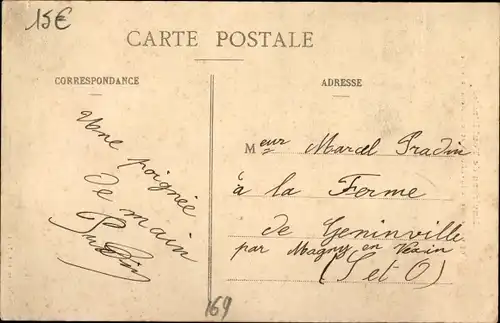 15€
CARTE POSTALE
CORRESPONDANCE
ADRESSE
Une poignée
de main
Meur Marcel Pradin
à la Ferme
de Geninville
par Magny en Vexin
(S et O)
169